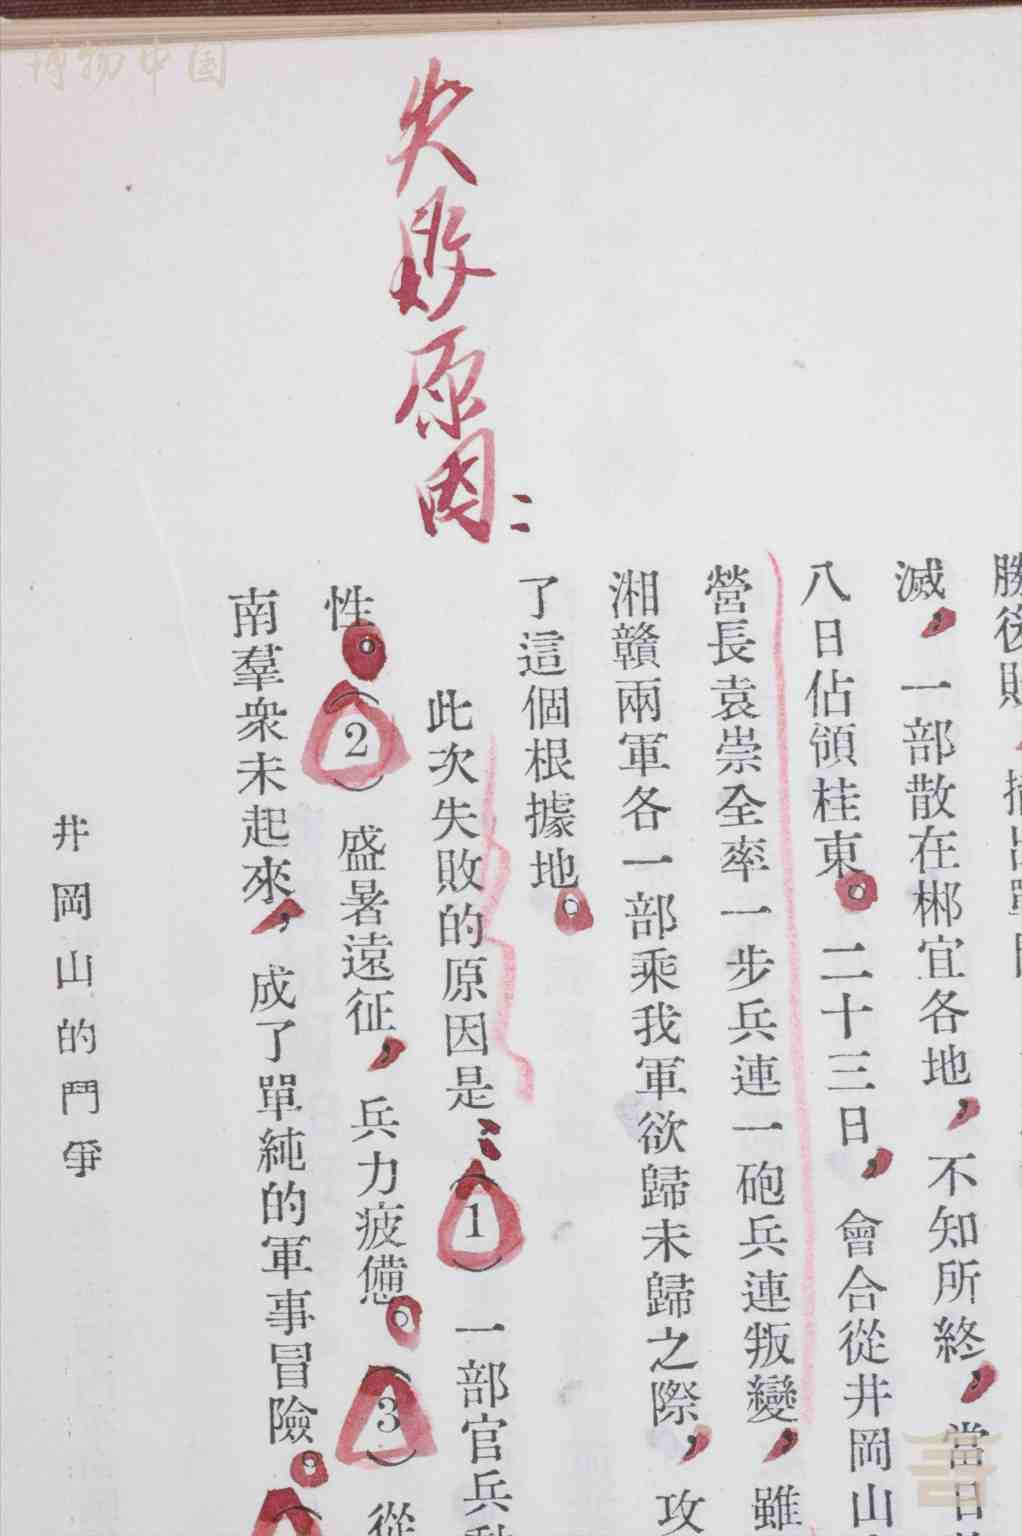 博物中国
失敗原因：
滅，一部散在郴宜各地，不知所終，當日
八日佔領桂東。二十三日，會合從井岡山
營長袁崇全率一步兵連一砲兵連叛變，雖
湘贛兩軍各一部乘我軍欲歸未歸之際，攻
了這個根據地。
此次失敗的原因是：（1）一部官兵動
性。（2）盛暑遠征，兵力疲憊。（3）從
南羣衆未起來，成了單純的軍事冒險。（
井岡山的鬥爭